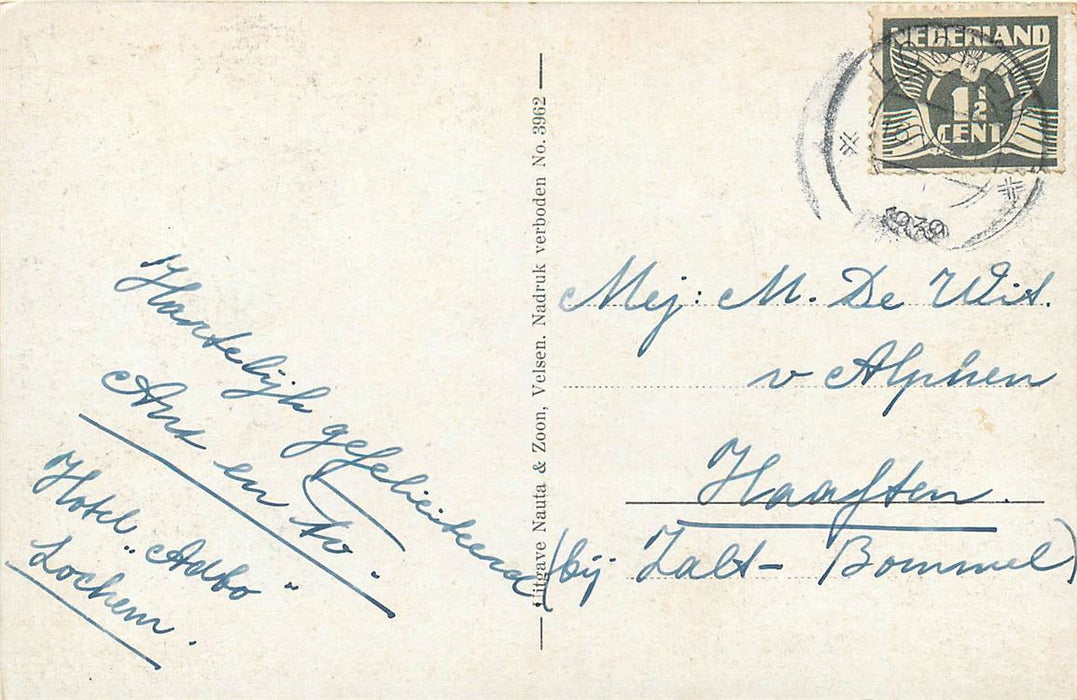 NEDERLAND
1½
CENT
1939
Hartelijk gefeliciteerd
Ant en to.
Hotel „Adbo"
Lochem.
Uitgave Nauta & Zoon, Velsen. Nadruk verboden No. 3962
Mej: M. De Wit.
v Alphen
Haaften.
(bij Zalt-Bommel)